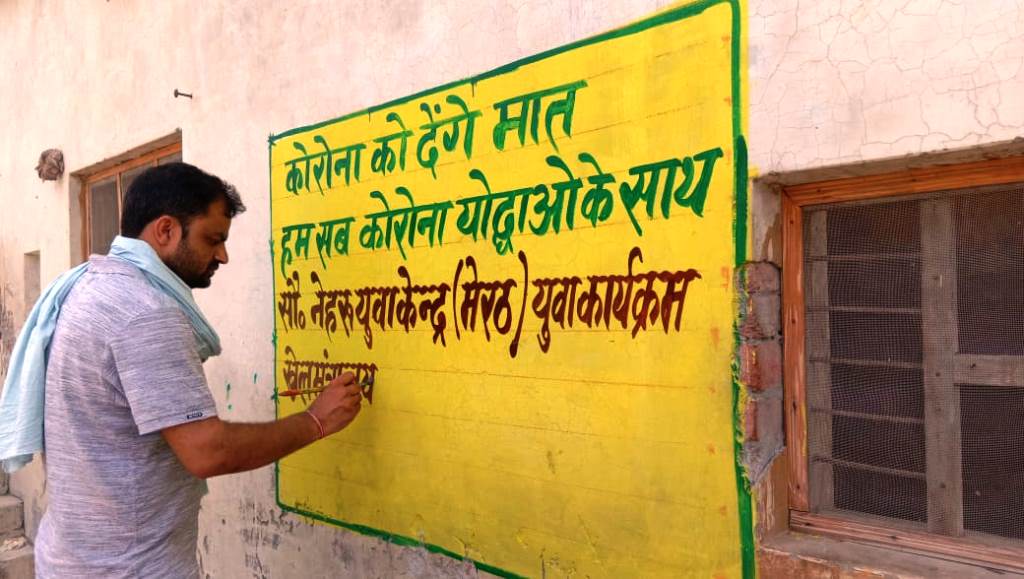 कोरोना को देंगे मात
हम सब कोरोना योद्धाओ के साथ
सौ० नेहरू युवा केन्द्र (मेरठ) युवा कार्यक्रम
खेल मंत्रालय